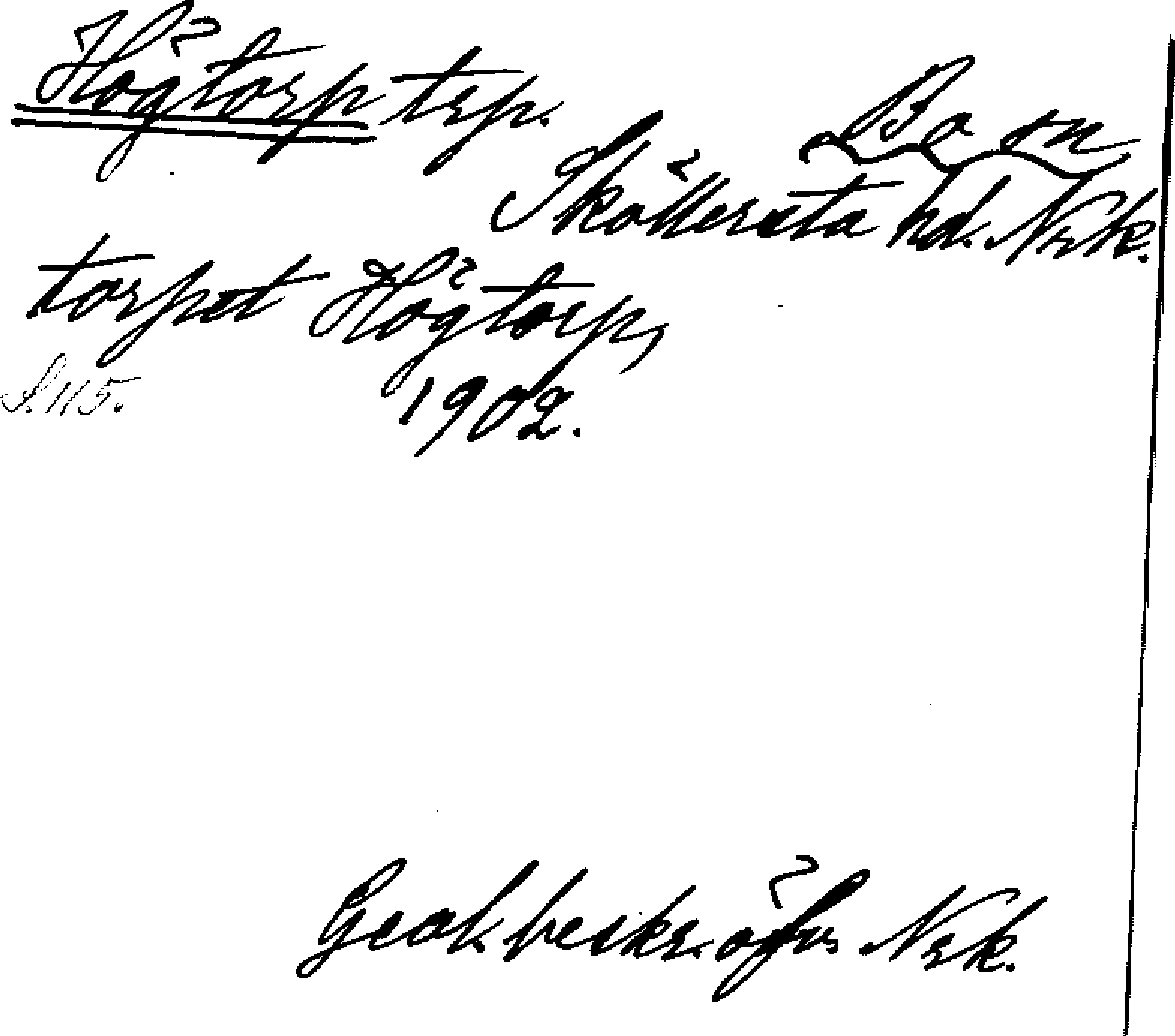 Högtorp trp.
Bo sn
Sköllersta hd. Nrk.
torpet Högtorp,
S. 115.
1902.
Geol. beskr. öfv. Nrk.